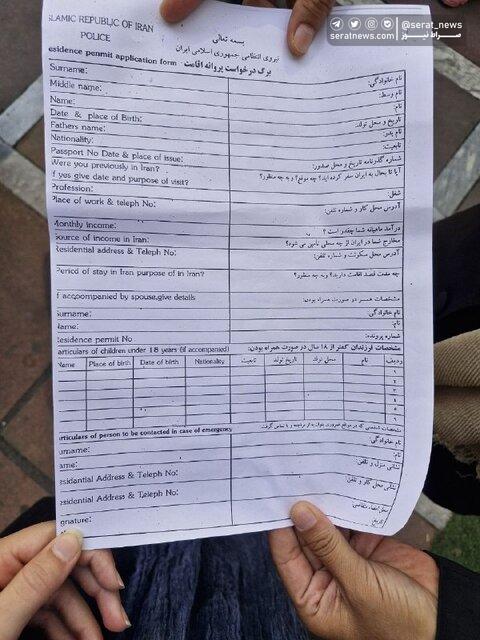 @serat_news
seratnews.com صراط نیوز
SLAMIC REPUBLIC OF IRAN
POLICE
بسمه تعالی
نیروی انتظامی جمهوری اسلامی ایران
esidence penmit application form - برگ درخواست پروانه اقامت
Surname: نام خانوادگی:
Middle name: نام وسط:
Name: نام:
Date & place of Birth: تاریخ و محل تولد:
Fathers name: نام پدر:
Nationality: تابعیت:
Passport No Date & place of issue: شماره گذرنامه تاریخ و محل صدور:
Were you previously in Iran? آیا تا بحال به ایران سفر کرده اید؟ چه موقع؟ و به چه منظور؟
f yes give date and purpose of visit?
Profession: شغل:
Place of work & teleph No: آدرس محل کار و شماره تلفن:
Monthly income: درآمد ماهیانه شما چقدر است ؟
Source of income in Iran: مخارج شما در ایران از چه محلی تأمین می شود؟
Residential address & Teleph No: آدرس محل سکونت و شماره تلفن:
Period of stay in Iran purpose of in Iran? چه مدت قصد اقامت دارید؟ وبه چه منظور؟
f accpomponied by spouse,give details مشخصات همسر در صورت همراه بودن:
urname: نام خانوادگی:
Name: نام:
Residence permit No شماره پرونده:
articulars of children under 18 years (if accompanied) مشخصات فرزندان کمتر از ۱۸ سال در صورت همراه بودن:
Name Place of birth Date of birth Nationality تابعیت تاریخ تولد محل تولد نام ردیف
۱
۲
۳
۴
۵
۶
articulars of person to be contacted in case of emergency مشخصات شخصی که در مواقع ضروری بتوان به او مراجعه و یا تماس گرفت.
urname: نام خانوادگی:
ame: نام:
esidential Address & Teleph No: نشانی منزل و تلفن:
esidential Address & Teleph No: نشانی محل کار و تلفن:
gnature: محل امضاء متقاضی:
تاریخ: